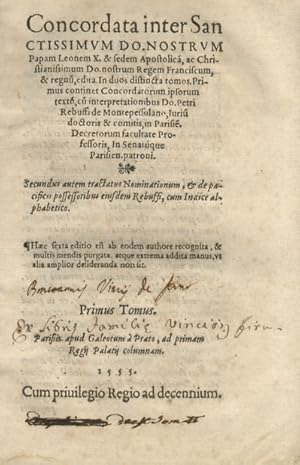 Concordata inter San
CTISSIMVM DO. NOSTRVM
Papam Leonem X. & sedem Apostolicã, ac Chri
stianissimum Do. nostrum Regem Franciscum,
& regnũ, edita. In duos distincta tomos. Pri
mus continet Concordatorum ipsorum
textũ, cũ interpretationibus Do. Petri
Rebuffi de Montepessulano, Iuriũ
doctoris & comitis, in Parisiẽ.
Decretorum facultate Pro
fessoris, In Senatúque
Parisien. patroni.
Secundus autem tractatus Nominationum, & de pa
cificis possessoribus eiusdem Rebuffi, cum Indice al
phabetico.
¶Hæc sexta editio est ab eodem authore recognita, &
multis mendis purgata, atque extrema addita manus, vt
alia amplior desideranda non sit.
de
Primus Tomus.
Ex Libris Familie
Parisiis apud Galeotum à Prato, ad primam
Regij Palatij columnam.
1555.
Cum priuilegio Regio ad decennium.